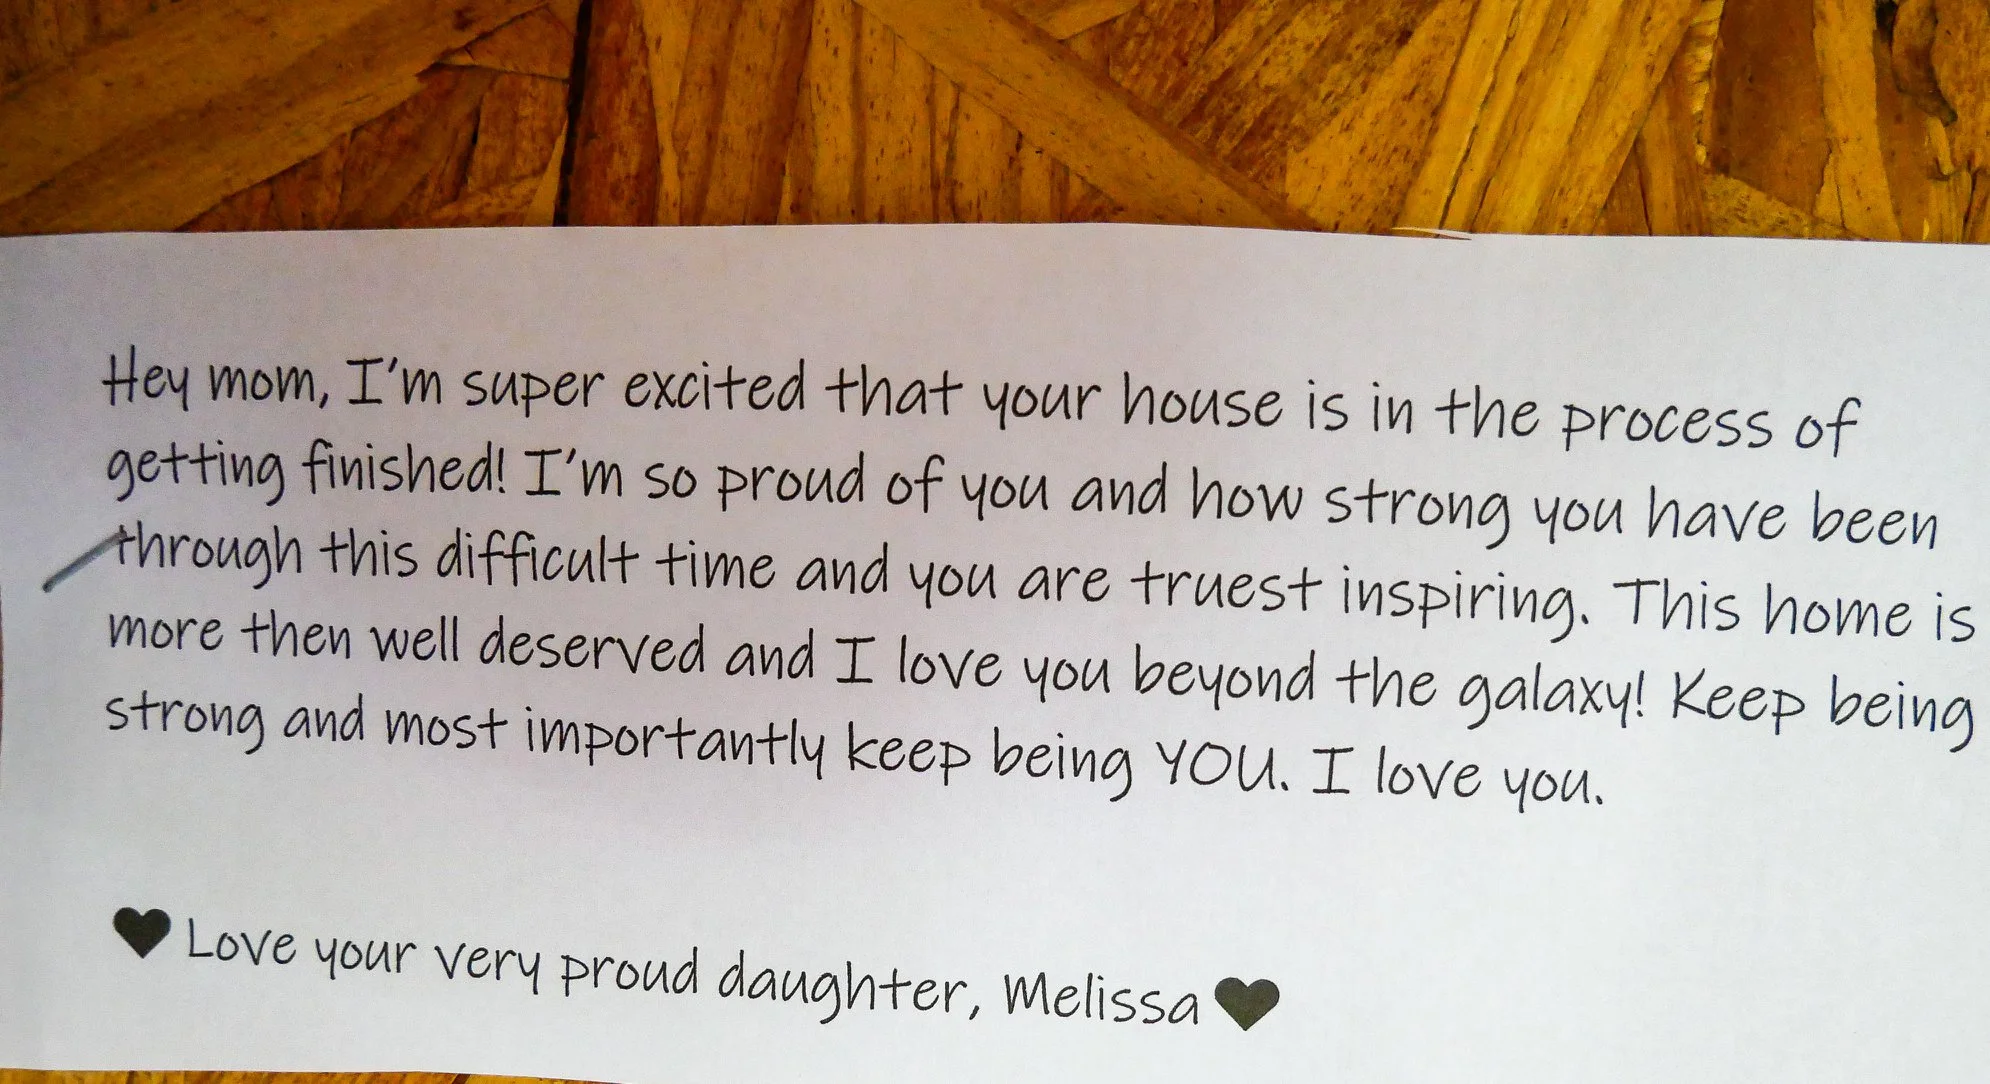 Hey mom, I'm super excited that your house is in the process of
getting finished! I'm so proud of you and how strong you have been
through this difficult time and you are truest inspiring. This home is
more then well deserved and I love you beyond the galaxy! Keep being
strong and most importantly keep being YOU. I love you.
♥ Love your very proud daughter, Melissa ♥